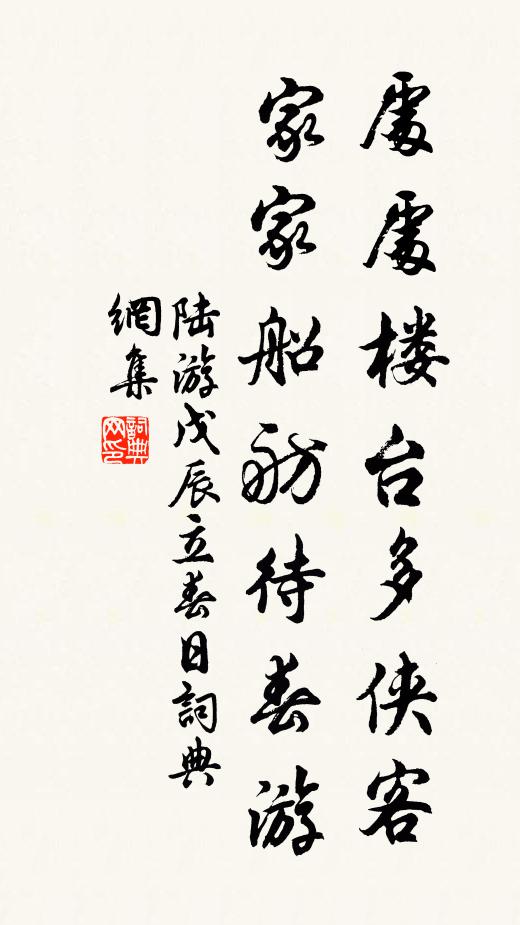 處處楼台多侠客
家家船舫待春游
陆游戊辰立春日詞典
網集
詞典
网印